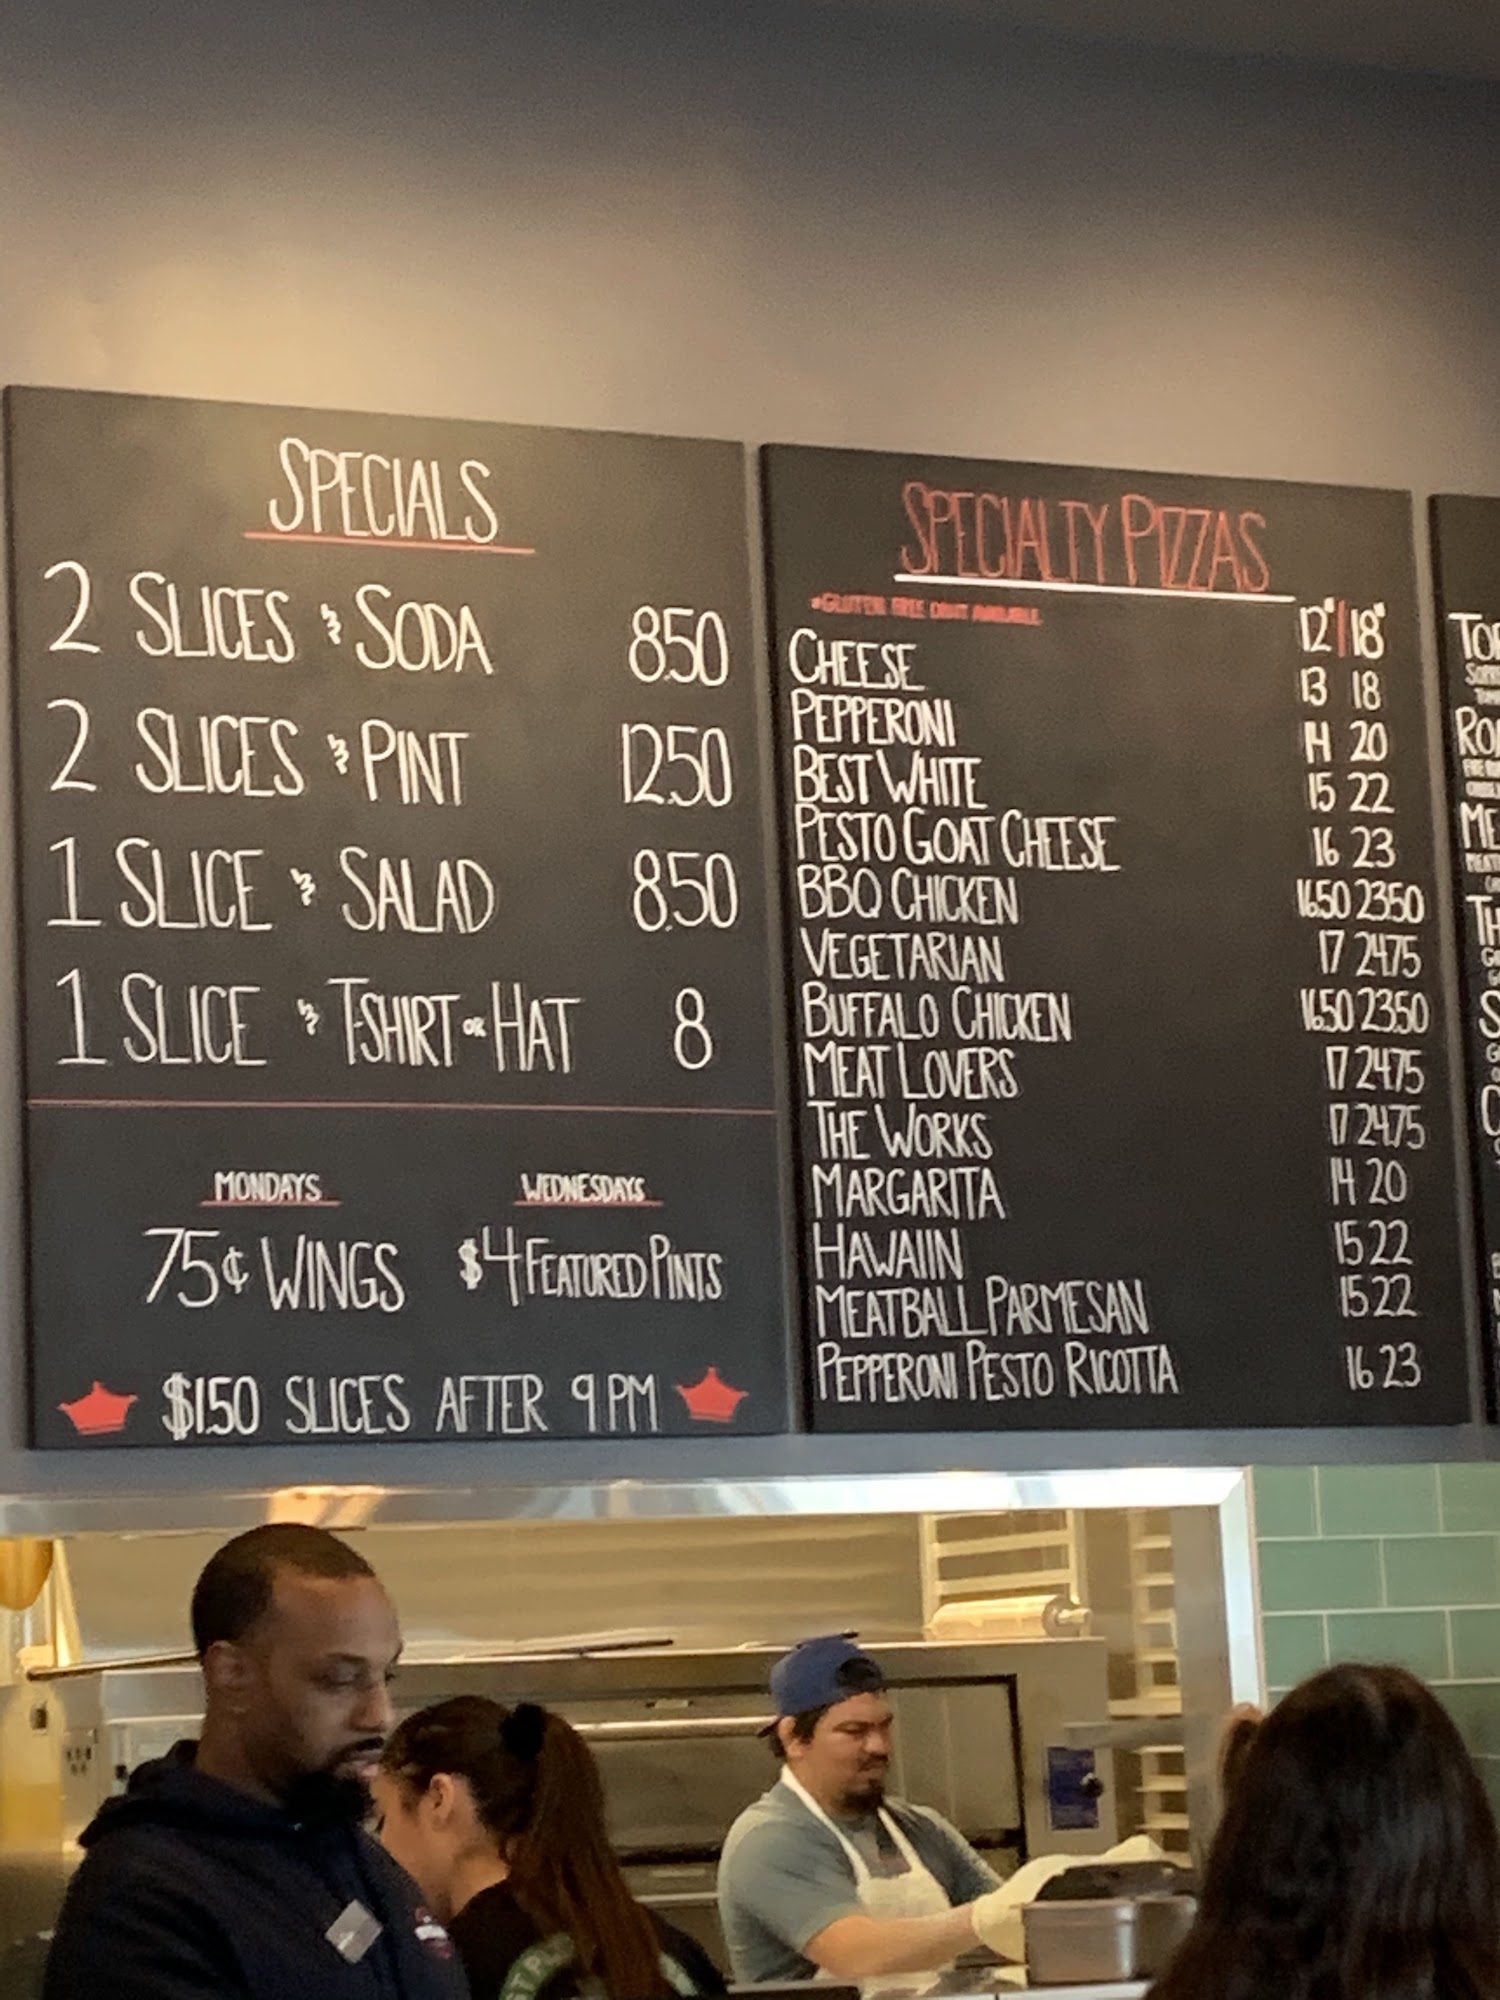 SPECIALS
2 SLICES & SODA 8.50
2 SLICES & PINT 12.50
1 SLICE & SALAD 8.50
1 SLICE & T-SHIRT OR HAT 8
MONDAYS
75¢ WINGS
WEDNESDAYS
$4 FEATURED PINTS
$1.50 SLICES AFTER 9 PM
SPECIALTY PIZZAS
*GLUTEN FREE CRUST AVAILABLE
12"/18"
CHEESE 13 18
PEPPERONI 14 20
BEST WHITE 15 22
PESTO GOAT CHEESE 16 23
BBQ CHICKEN 16.50 23.50
VEGETARIAN 17 24.75
BUFFALO CHICKEN 16.50 23.50
MEAT LOVERS 17 24.75
THE WORKS 17 24.75
MARGARITA 14 20
HAWAIIN 15 22
MEATBALL PARMESAN 15 22
PEPPERONI PESTO RICOTTA 16 23